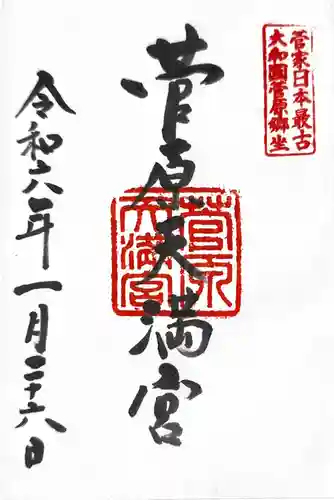 菅家日本最古
大和國菅原郷坐
菅原天満宮
菅原天満宮
令和六年一月二十六日